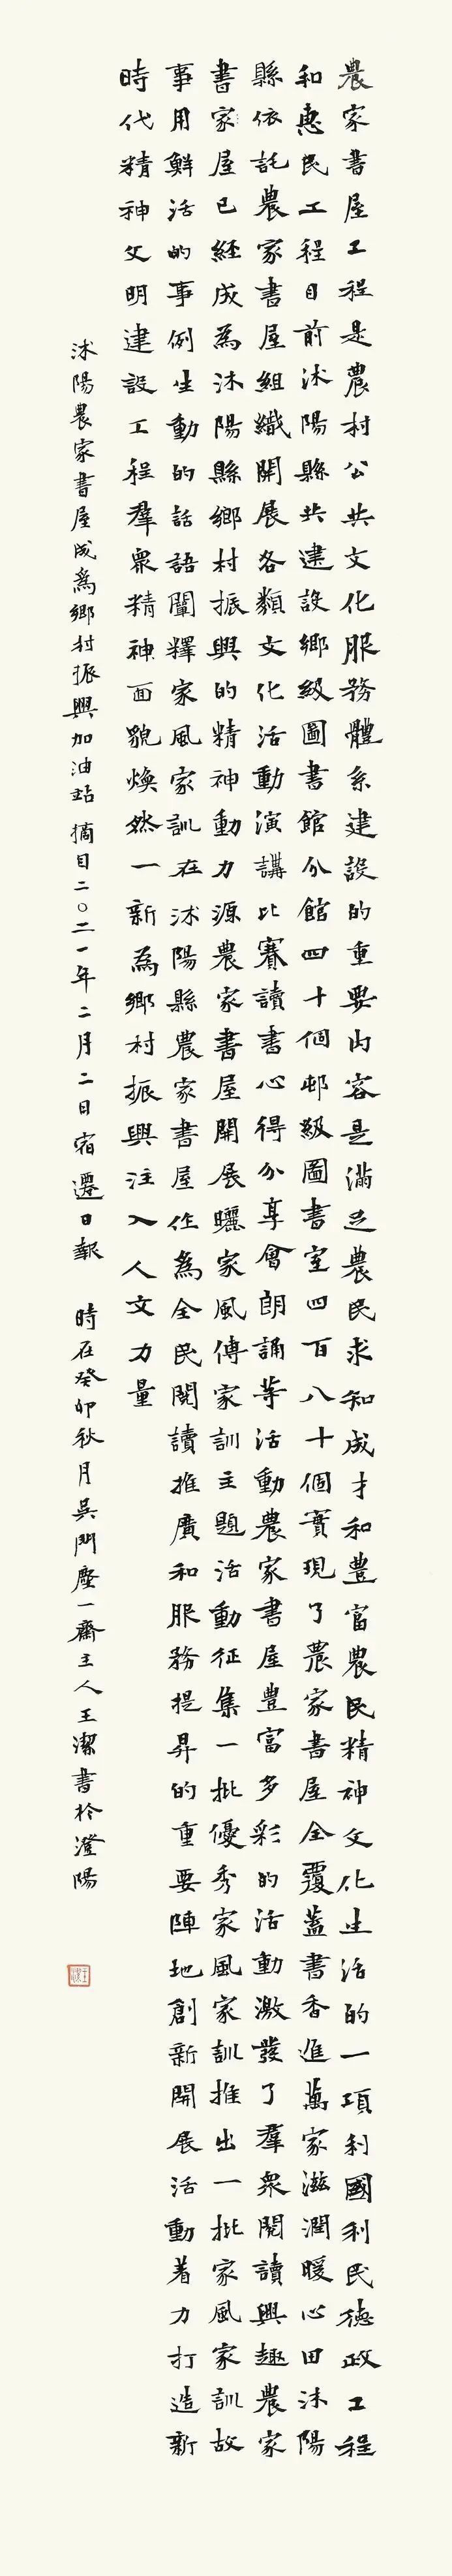 農家書屋工程是農村公共文化服務體系建設的重要內容是滿足農民求知成才和豐富農民精神文化生活的一項利國利民德政工程
和惠民工程目前沭陽縣共建設鄉級圖書館分館四十個邨級圖書室四百八十個實現了農家書屋全覆蓋書香進萬家滋潤暖心田沭陽
縣依託農家書屋組織開展各類文化活動演講比賽讀書心得分享會朗誦等活動農家書屋豐富多彩的活動激發了羣衆閱讀興趣農家
書家屋已經成為沭陽縣鄉村振興的精神動力源農家書屋開展曬家風傳家訓主題活動征集一批優秀家風家訓推出一批家風家訓故
事用鮮活的事例生動的話語闡釋家風家訓在沭陽縣農家書屋作為全民閱讀推廣和服務提昇的重要陣地創新開展活動着力打造新
時代精神文明建設工程羣衆精神面貌煥然一新為鄉村振興注入人文力量
沭陽農家書屋成為鄉村振興加油站 摘自二〇二一年二月二日宿遷日報 時在癸卯秋月吳門塵一齋主人王潔書於澄陽